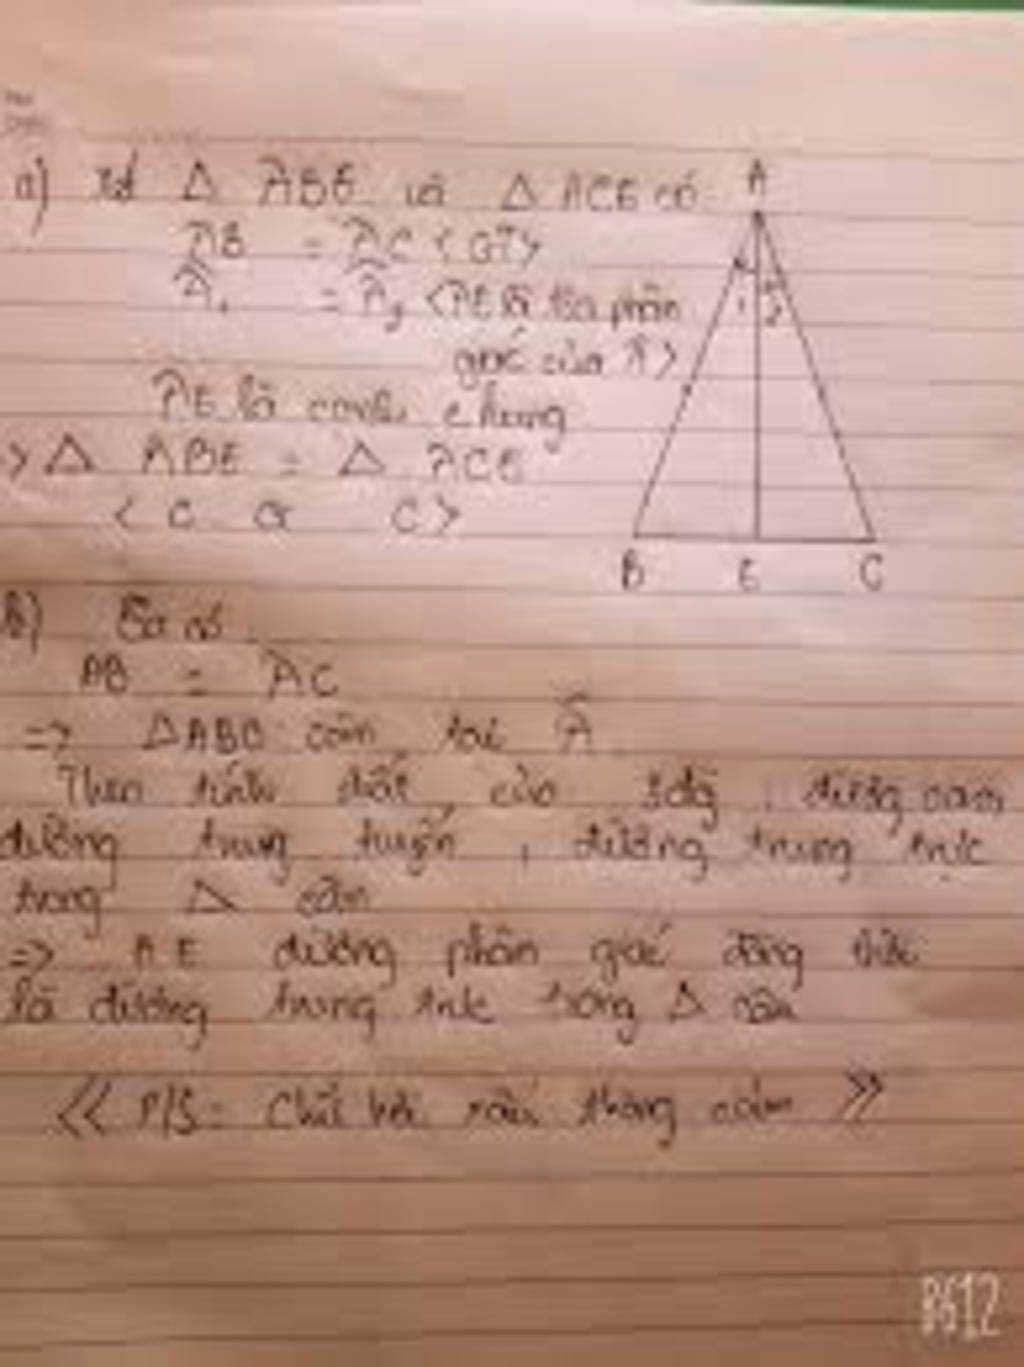 a) Xét Δ ABE và Δ ACE có
AB = AC <GT>
Â₁ = Â₂ <AE là tia phân
giác của Â>
AE là cạnh chung
=> Δ ABE = Δ ACE
< c g c >
A
1 2
B E C
b) Ta có
AB = AC
=> ΔABC cân tại A
Theo tính chất của đường cao
đường trung tuyến, đường trung trực
trong Δ cân
=> AE đường phân giác đồng thời
là đường trung trực trong Δ cân
<< P/S: Chữ hơi xấu thông cảm >>
8612